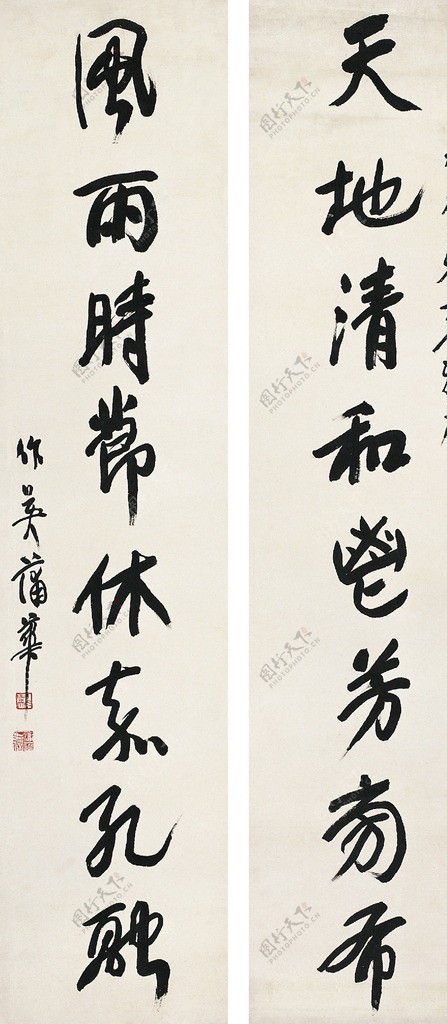 天地清和鬯芳旁布
風雨時節休嘉孔融
作英蒲華
图行天下
PHOTOPHOTO.CN